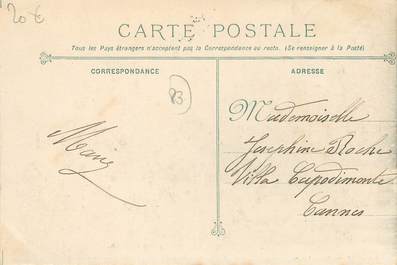 20 €
CARTE POSTALE
Tous les Pays étrangers n'acceptent pas la Correspondance au recto. (Se renseigner à la Poste)
CORRESPONDANCE
ADRESSE
83
Marie
Mademoiselle
Josephine Roche
Villa Capodimonte
Cannes